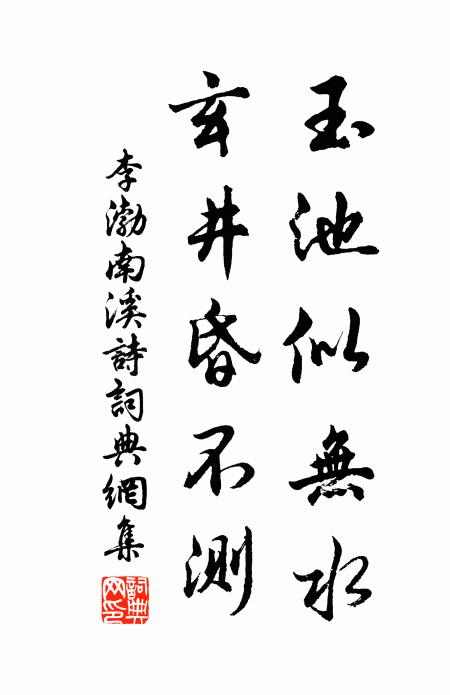 玉池似無水
玄井昏不測
李渤南溪詩詞典網集
詞典網印